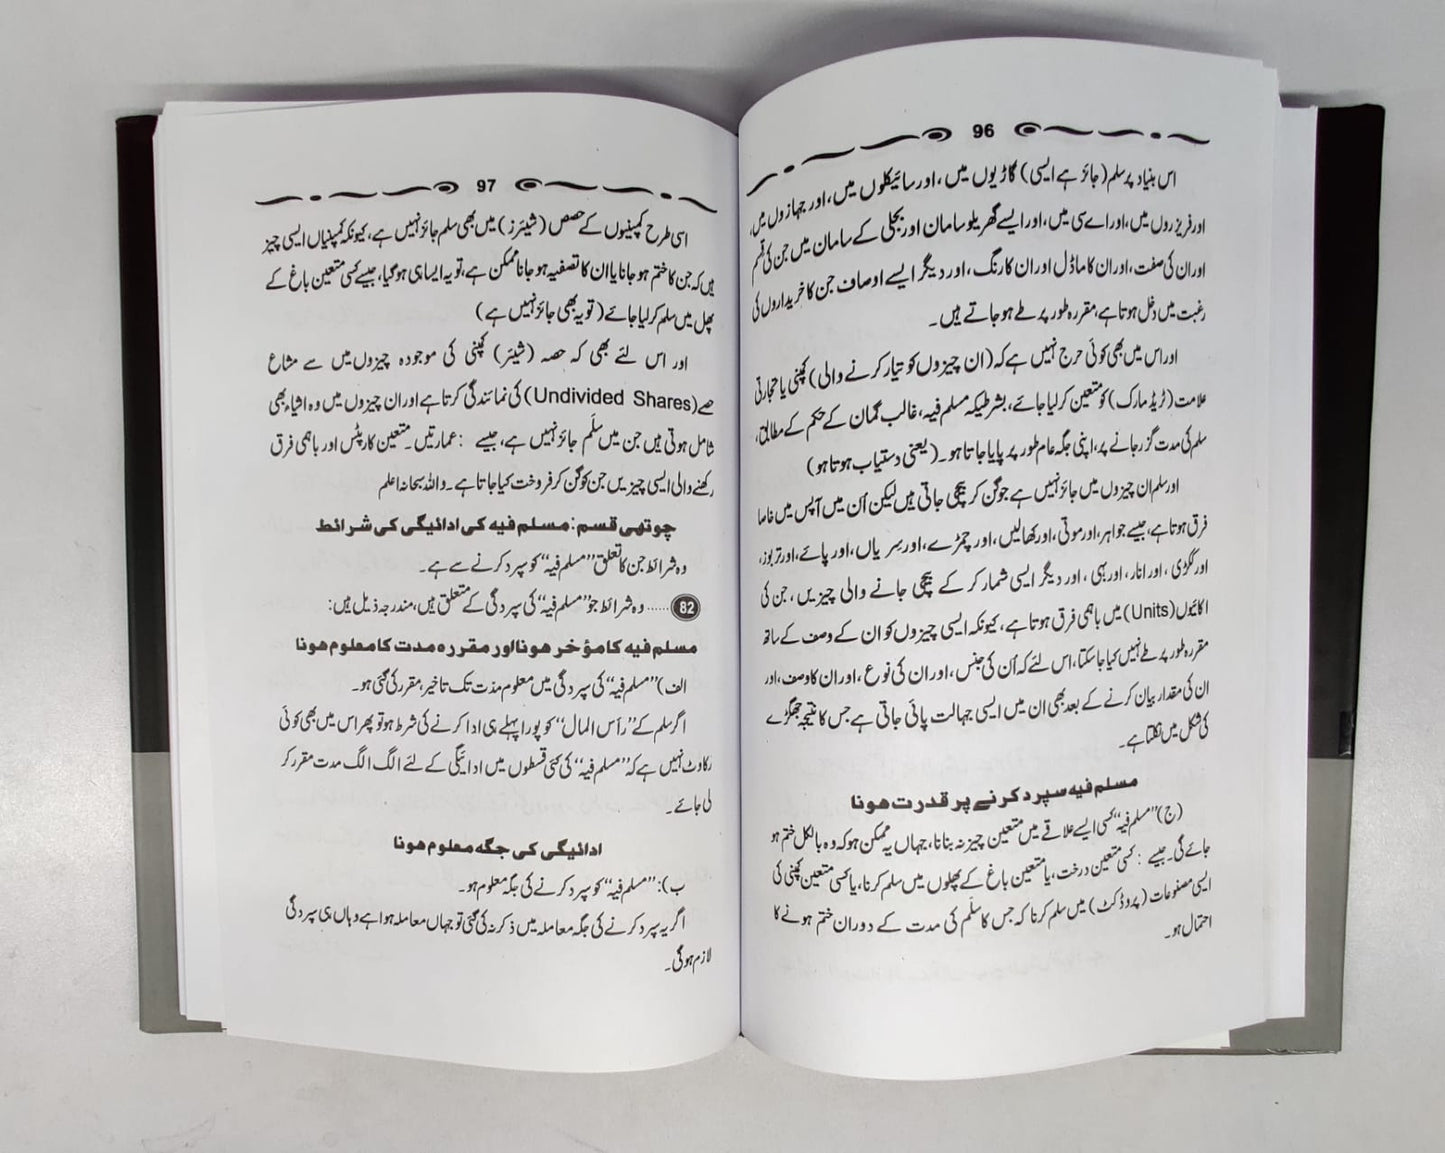 96
اس بنیاد پر سلم (جائز ہے ایسی) گاڑیوں میں، اور سائیکلوں میں، اور جہازوں میں،
اور فریزروں میں، اور اے سی میں، اور ایسے گھریلو سامان اور بجلی کے سامان میں جن کی قسم
اور ان کی صفت، اور ان کا ماڈل اور ان کا رنگ، اور دیگر ایسے اوصاف جن کا خریداروں کی
رغبت میں دخل ہوتا ہے، مقررہ طور پر طے ہو جاتے ہیں۔
اور اس میں بھی کوئی حرج نہیں ہے کہ (ان چیزوں کو تیار کرنے والی) کمپنی یا تجارتی
علامت (ٹریڈ مارک) کو متعین کر لیا جائے، بشرطیکہ مسلم فیہ، غالب گمان کے حکم کے مطابق،
سلم کی مدت گزر جانے پر، اپنی جگہ عام طور پر پایا جاتا ہو۔ (یعنی دستیاب ہوتا ہو)
اور سلم ان چیزوں میں جائز نہیں ہے جو گن کر بیچی جاتی ہیں لیکن اُن میں آپس میں خاصا
فرق ہوتا ہے، جیسے جواہر، اور موتی، اور کھالیں، اور چمڑے، اور سِریاں، اور پائے، اور تربوز،
اور ککڑی، اور انار، اور بہی، اور دیگر ایسی شمار کر کے بیچی جانے والی چیزیں، جن کی
اکائیوں (Units) میں باہمی فرق ہوتا ہے، کیونکہ ایسی چیزوں کو ان کے وصف کے ساتھ
مقررہ طور پر طے نہیں کیا جا سکتا، اس لئے کہ اُن کی جنس، اور ان کی نوع، اور ان کا وصف، اور
ان کی مقدار بیان کرنے کے بعد بھی ان میں ایسی جہالت پائی جاتی ہے جس کا نتیجہ جھگڑے
کی شکل میں نکلتا ہے۔
مسلم فیہ سپرد کرنے پر قدرت ہونا
(ج) ”مسلم فیہ“ کسی ایسے علاقے میں متعین چیز نہ بنانا، جہاں یہ ممکن ہو کہ وہ بالکل ختم ہو
جائے گی۔ جیسے: کسی متعین درخت، یا متعین باغ کے پھلوں میں سلم کرنا، یا کسی متعین کمپنی کی
ایسی مصنوعات (پروڈکٹ) میں سلم کرنا کہ جس کا سلَم کی مدت کے دوران ختم ہونے کا
احتمال ہو۔
97
اسی طرح کمپنیوں کے حصص (شیئرز) میں بھی سلم جائز نہیں ہے، کیونکہ کمپنیاں ایسی چیز
ہیں کہ جن کا ختم ہو جانا یا ان کا تصفیہ ہو جانا ممکن ہے، تو یہ ایسا ہی ہو گیا، جیسے کسی متعین باغ کے
پھل میں سلم کر لیا جائے (تو یہ بھی جائز نہیں ہے)
اور اس لئے بھی کہ حصہ (شیئر) کمپنی کی موجودہ چیزوں میں سے مشاع
حصے (Undivided Shares) کی نمائندگی کرتا ہے اور ان چیزوں میں وہ اشیاء بھی
شامل ہوتی ہیں جن میں سلَم جائز نہیں ہے، جیسے: عمارتیں۔ متعین کارپٹس اور باہمی فرق
رکھنے والی ایسی چیزیں جن کو گن کر فروخت کیا جاتا ہے۔ واللہ سبحانہ اعلم
چوتھی قسم: مسلم فیہ کی ادائیگی کی شرائط
وہ شرائط جن کا تعلق ”مسلم فیہ“ کو سپرد کرنے سے ہے۔
82 ..... وہ شرائط جو ”مسلم فیہ“ کی سپردگی کے متعلق ہیں، مندرجہ ذیل ہیں:
مسلم فیہ کا مؤخر ہونا اور مقررہ مدت کا معلوم ہونا
الف) ”مسلم فیہ“ کی سپردگی میں معلوم مدت تک تاخیر، مقرر کی گئی ہو۔
اگر سلم کے ”رأس المال“ کو پورا پہلے ہی ادا کرنے کی شرط ہو تو پھر اس میں بھی کوئی
رکاوٹ نہیں ہے کہ ”مسلم فیہ“ کی کئی قسطوں میں ادائیگی کے لئے الگ الگ مدت مقرر کر
لی جائے۔
ادائیگی کی جگہ معلوم ہونا
ب): ”مسلم فیہ“ کو سپرد کرنے کی جگہ معلوم ہو۔
اگر یہ سپرد کرنے کی جگہ معاملہ میں ذکر نہ کی گئی تو جہاں معاملہ ہوا ہے وہاں ہی سپردگی
لازم ہوگی۔